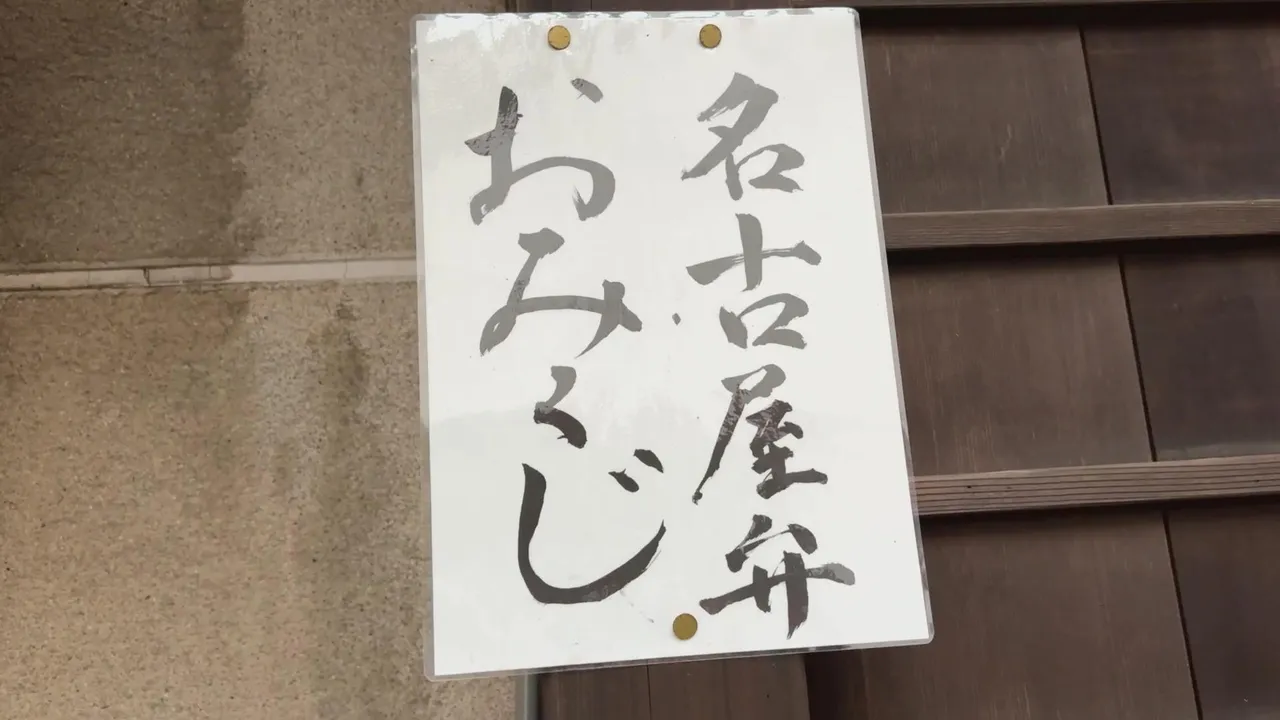 名古屋弁
おみくじ